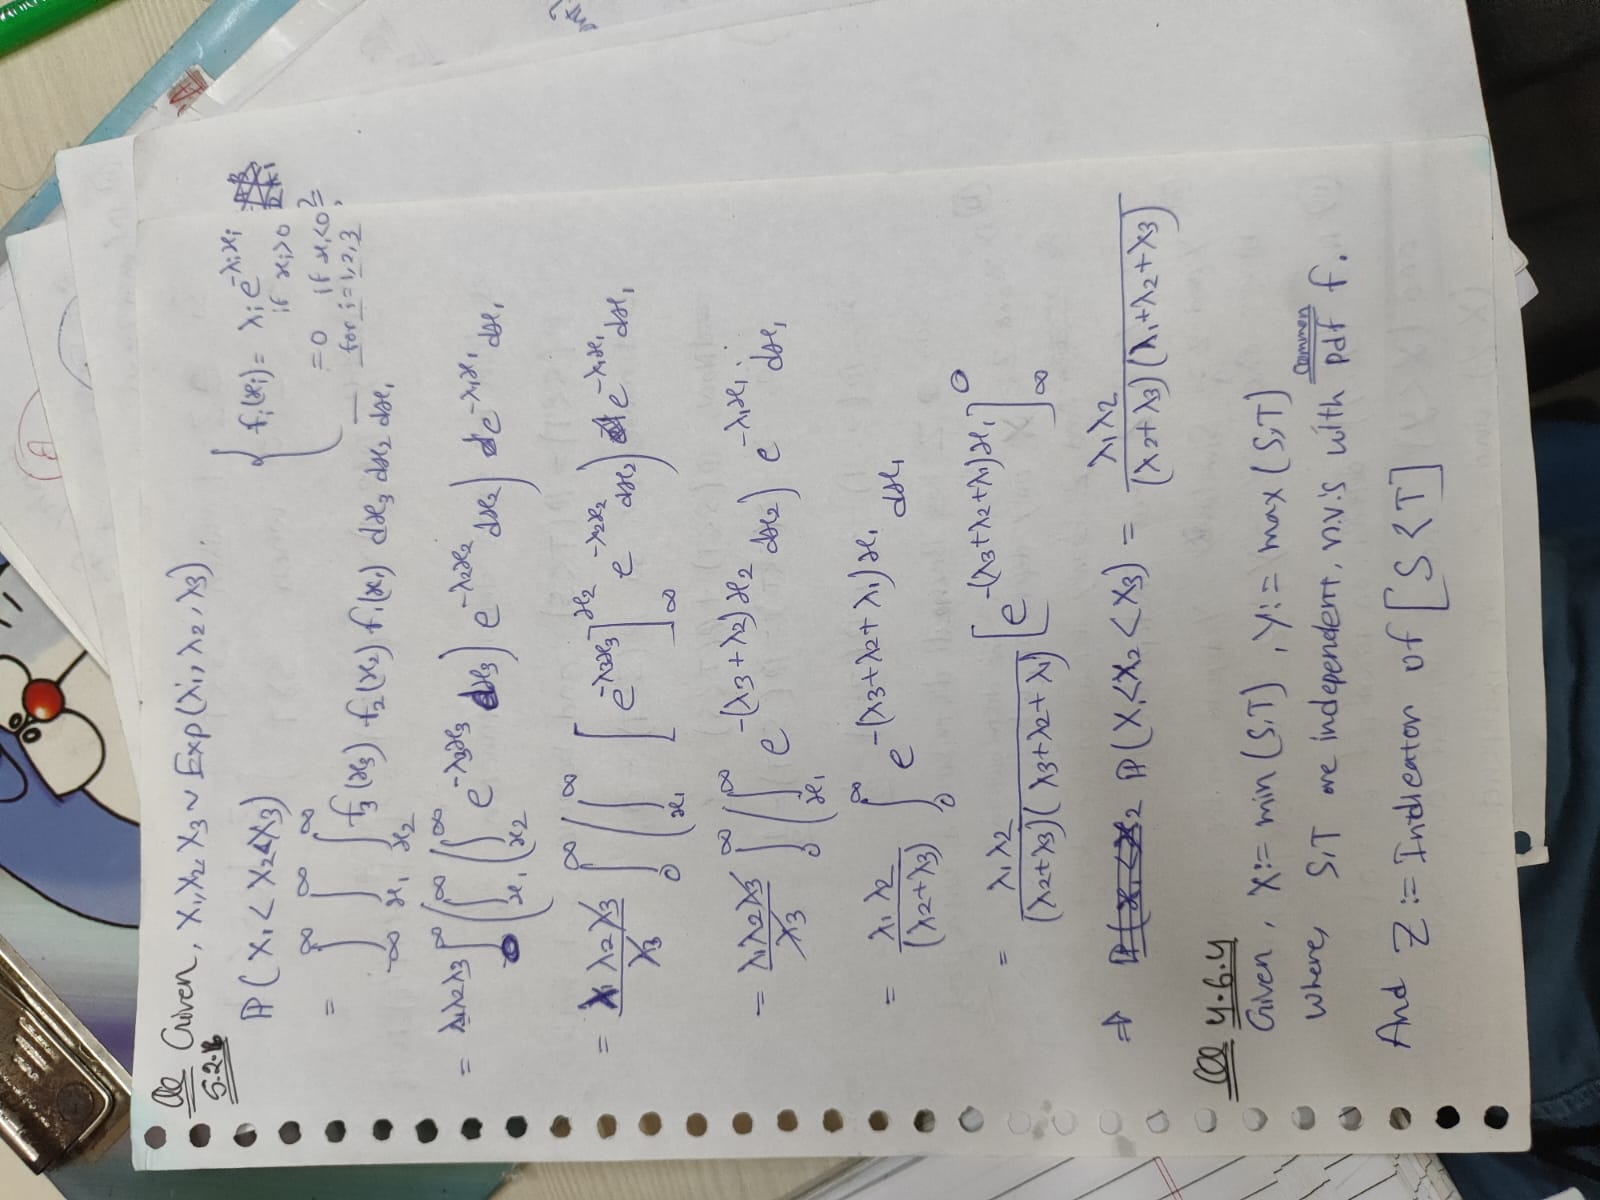 Qe Given, X₁, X₂, X₃ ~ Exp(λ₁, λ₂, λ₃).
5.2.
P(X₁ < X₂ < X₃)
{ fᵢ(xᵢ) = λᵢ e^{-λᵢxᵢ}
if xᵢ>0
=0 if xᵢ<0
for i=1,2,3
= ∫_{-∞}^{∞} ∫_{x₁}^{∞} ∫_{x₂}^{∞} f₃(x₃) f₂(x₂) f₁(x₁) dx₃ dx₂ dx₁
= λ₁λ₂λ₃ ∫_{0}^{∞} (∫_{x₁}^{∞} (∫_{x₂}^{∞} e^{-λ₃x₃} dx₃) e^{-λ₂x₂} dx₂) e^{-λ₁x₁} dx₁
= λ₁ λ₂ λ₃ / λ₃ ∫_{0}^{∞} (∫_{x₁}^{∞} [e^{-λ₃x₃}]_{∞}^{x₂} e^{-λ₂x₂} dx₂) e^{-λ₁x₁} dx₁
= λ₁λ₂λ₃ / λ₃ ∫_{0}^{∞} (∫_{x₁}^{∞} e^{-(λ₃+λ₂)x₂} dx₂) e^{-λ₁x₁} dx₁
= λ₁ λ₂ / (λ₂+λ₃) ∫_{0}^{∞} e^{-(λ₃+λ₂+λ₁)x₁} dx₁
= λ₁λ₂ / (λ₂+λ₃)(λ₃+λ₂+λ₁) [e^{-(λ₃+λ₂+λ₁)x₁}]_{∞}^{0}
⇒ P(X₁<X₂<X₃) = λ₁λ₂ / (λ₂+λ₃)(λ₁+λ₂+λ₃)
Qe 4.6.4
Given, X:= min (S,T), Y:= max (S,T)
where, S,T are independent, r.v.'s with common pdf f.
And Z := Indicator of [S < T]